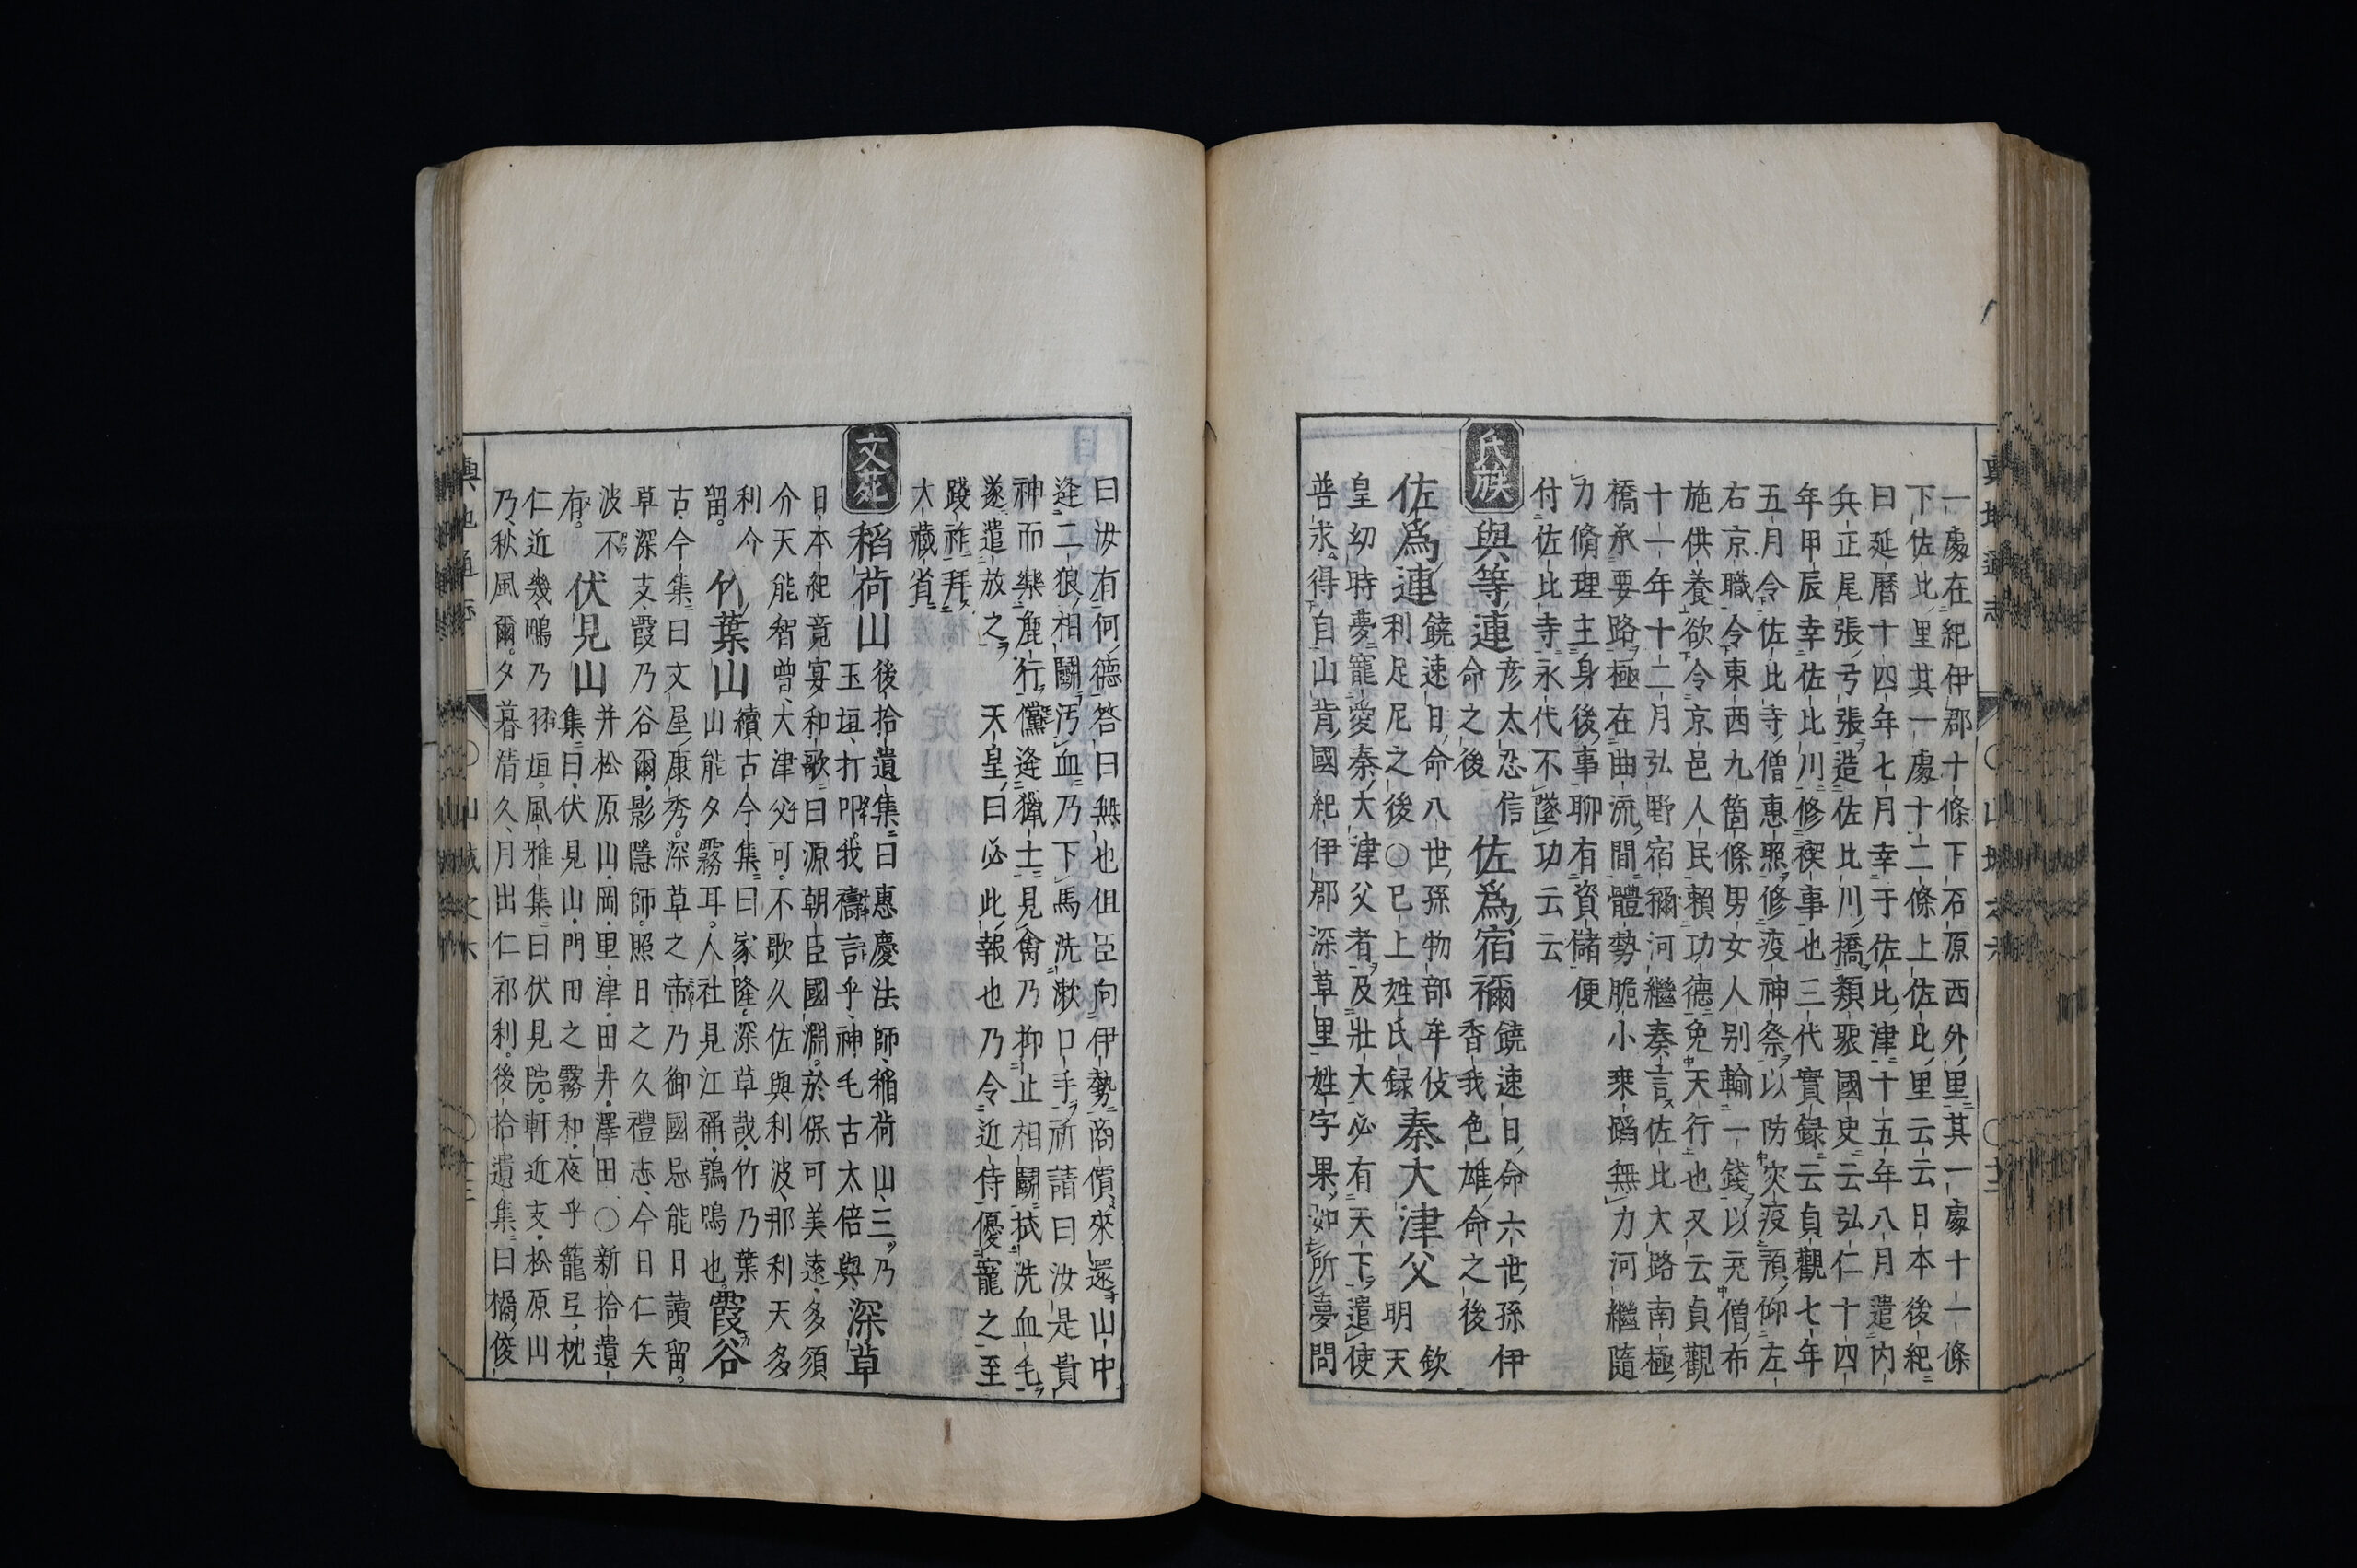 一處在紀伊郡十條下石原西外里其一處十一條
下佐比里其一處十二條上佐比里云云日本後紀
曰延曆十四年七月幸于佐比津十五年八月遣內
兵正尾張弓張造佐比川橋類聚國史云弘仁十四
年甲辰幸佐比川修禊事也三代實録云貞觀七年
五月令佐比寺僧惠照修疫神祭以防灾疫預仰左
右京職令東西九箇條男女人別輸一錢以充僧布
施供養欲令京邑人民賴功德免天行也又云貞觀
十一年十二月弘野宿禰河繼奏言佐比大路南極
橋承要路極在曲流間體勢脆小乘蹈無力河繼隨
力脩理主身後事聊有資儲便
付佐比寺永代不墜功云云
氏族
與等連
彦太忍信
命之後
佐爲宿禰
饒速日命六世孫伊
香我色雄命之後
佐爲連
饒速日命八世孫物部牟伎
利足尼之後○已上姓氏録
秦大津父
欽
明天
皇幼時夢寵愛秦大津父者及壯大必有天下遣使
普求得自山背國紀伊郡深草里姓字果如所夢問
曰汝有何德答曰無也但臣向伊勢商價來還山中
逢二狼相鬪汚血乃下馬洗漱口手祈請曰汝是貴
神而樂麁行儻逢獵士見禽乃抑止相鬪拭洗血毛
遂遣放之 天皇曰必此報也乃令近侍優寵之至
踐祚拜
大藏省
文苑
稻荷山
後拾遺集曰惠慶法師稲荷山三乃
玉垣打叩我禱言乎神毛古太倍與
深草
日本紀竟宴和歌曰源朝臣國淵於保可美遠多須
介天能智曽大津父可不歌久佐與利波那利天多
利今
留
竹葉山
續古今集曰家隆深草哉竹乃葉
山能夕霧耳人社見江禰鶉鳴也
霞谷
古今集曰文屋康秀深草之帝乃御國忌能日讀留
草深支霞乃谷爾影隱師照日之久禮志今日仁矢
波不
有
伏見山
井松原山岡里津田井澤田○新拾遺
集曰伏見山門田之霧和夜乎籠互枕
仁近幾鴫乃羽垣風雅集曰伏見院軒近支松原山
乃秋風爾夕暮淸久月出仁祁利後拾遺集曰橘俊
輿地通志 ○山城之六 ○十三